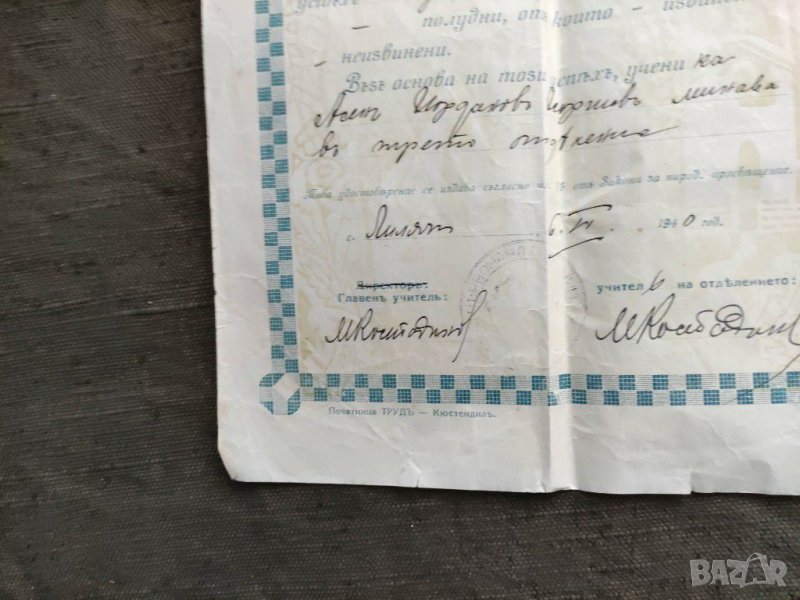 успѣх
полудни, отъ които – извинени
– неизвинени.
Възъ основа на този успѣхъ, ученика
Асенъ Йорданов минава
въ трето отделение
Това удостовѣрение се издава съгласно чл. отъ Закона за народ. просвѣщение.
с. Лиляч 6.VI. 1940 год.
Директоръ:
Главенъ учитель:
учител на отдѣлението:
Печатница ТРУДЪ – Кюстендилъ.
BAZAR